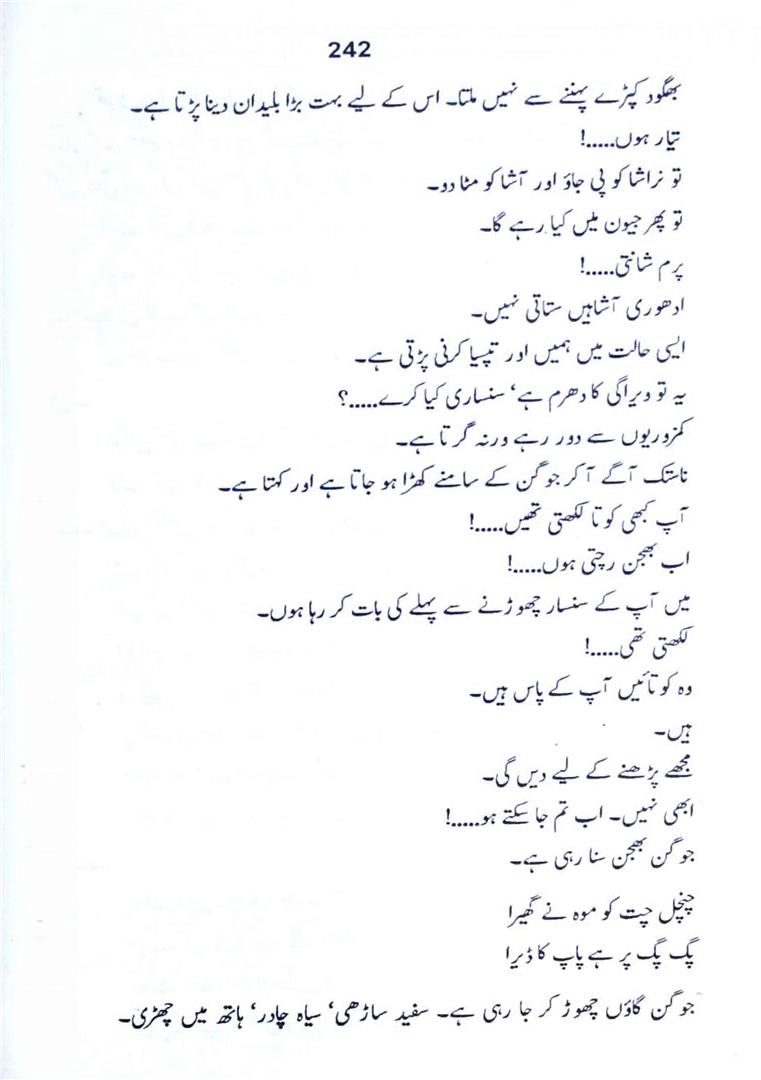 242
بھگود کپڑے پہننے سے نہیں ملتا۔ اس کے لیے بہت بڑا بلیدان دینا پڑتا ہے۔
تیار ہوں.....!
تو نراشا کو پی جاؤ اور آشا کو مٹا دو۔
تو پھر جیون میں کیا رہے گا۔
پرم شانتی.....!
ادھوری آشاہیں ستاتی نہیں۔
ایسی حالت میں ہمیں اور تپسیا کرنی پڑتی ہے۔
یہ تو ویراگی کا دھرم ہے‘ سنساری کیا کرے.....؟
کمزوریوں سے دور رہے ورنہ گرتا ہے۔
ناستک آگے آ کر جوگن کے سامنے کھڑا ہو جاتا ہے اور کہتا ہے۔
آپ کبھی کوتا لکھتی تھیں.....!
اب بھجن رچتی ہوں.....!
میں آپ کے سنسار چھوڑنے سے پہلے کی بات کر رہا ہوں۔
لکھتی تھی.....!
وہ کوتائیں آپ کے پاس ہیں۔
ہیں۔
مجھے پڑھنے کے لیے دیں گی۔
ابھی نہیں۔ اب تم جا سکتے ہو.....!
جوگن بھجن سنا رہی ہے۔
چنچل چت کو موہ نے گھیرا
پگ پگ پر ہے پاپ کا ڈیرا
جوگن گاؤں چھوڑ کر جا رہی ہے۔ سفید ساڑھی‘ سیاہ چادر‘ ہاتھ میں چھڑی۔